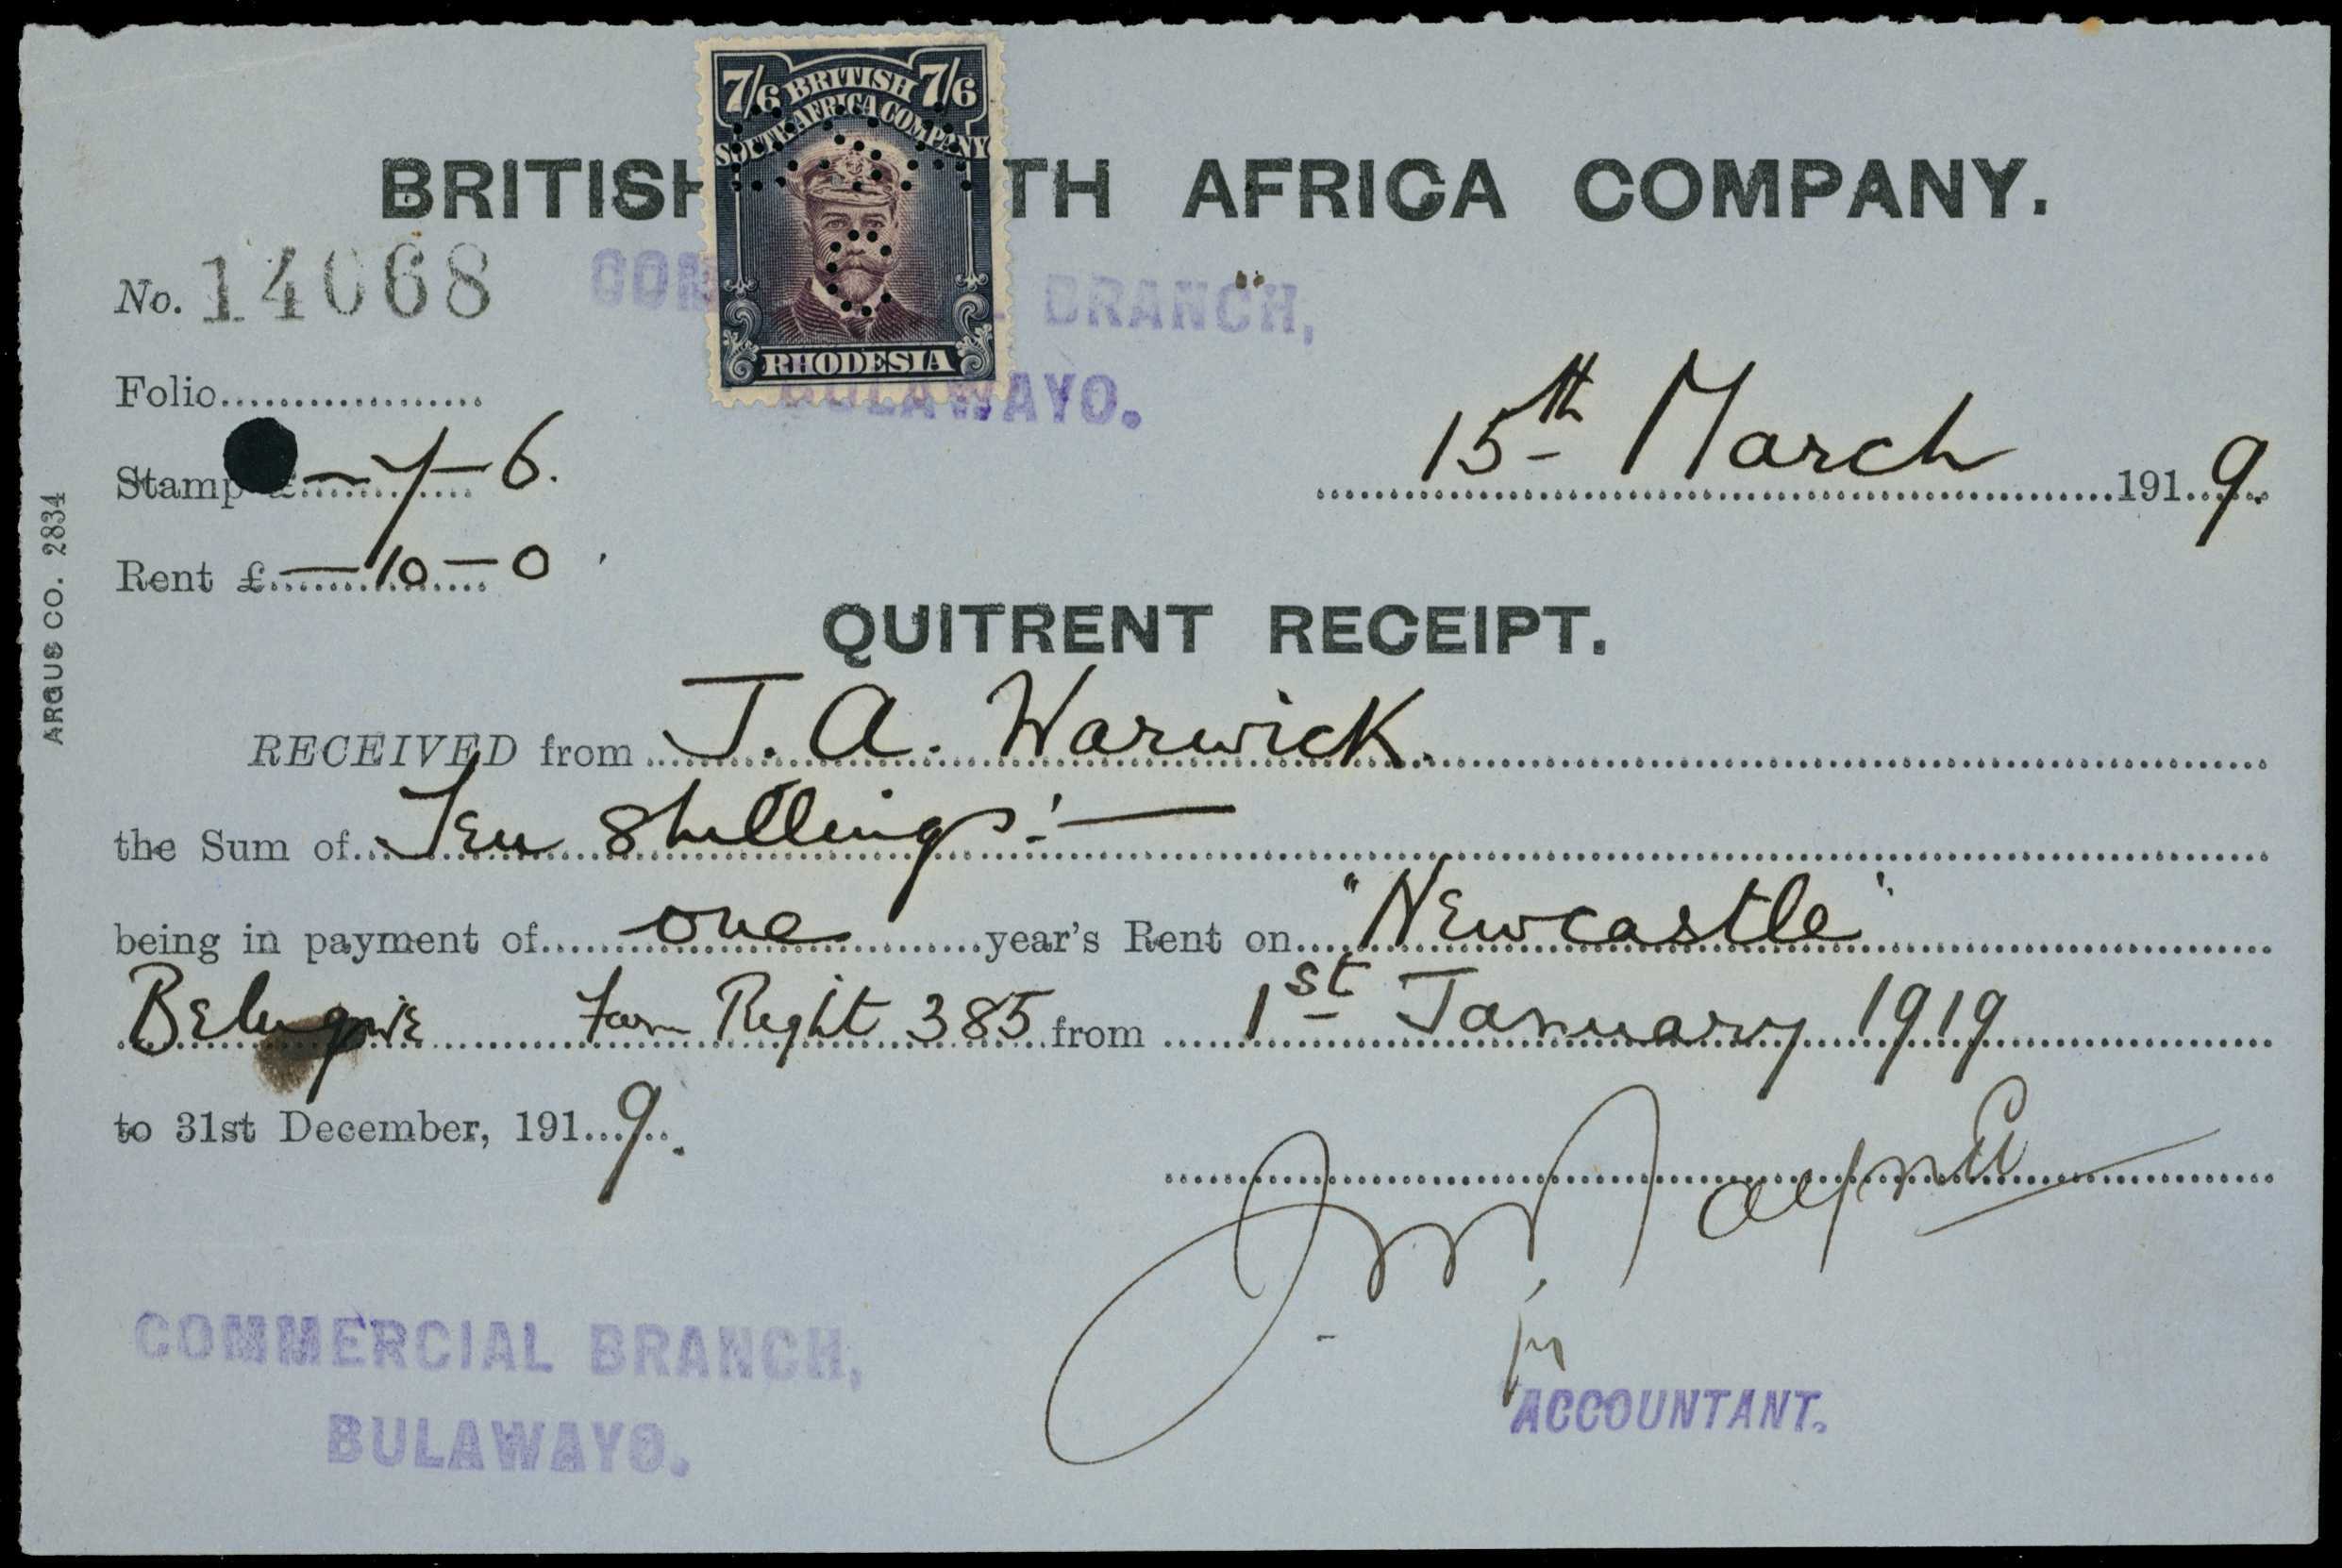 7/6 BRITISH 7/6
SOUTH AFRICA COMPANY
RHODESIA
BRITISH TH AFRICA COMPANY.
No. 14068
COM L BRANCH,
BULAWAYO.
Folio
Stamp £ — 7 — 6.
15th March 1919.
Rent £ — 10 — 0
ARGUS CO. 2834
QUITRENT RECEIPT.
RECEIVED from J. A. Warwick.
the Sum of Ten Shillings:—
being in payment of one year's Rent on "Newcastle"
Belingwe Farm Right 385 from 1st January 1919
to 31st December, 1919.
COMMERCIAL BRANCH,
BULAWAYO.
ACCOUNTANT.